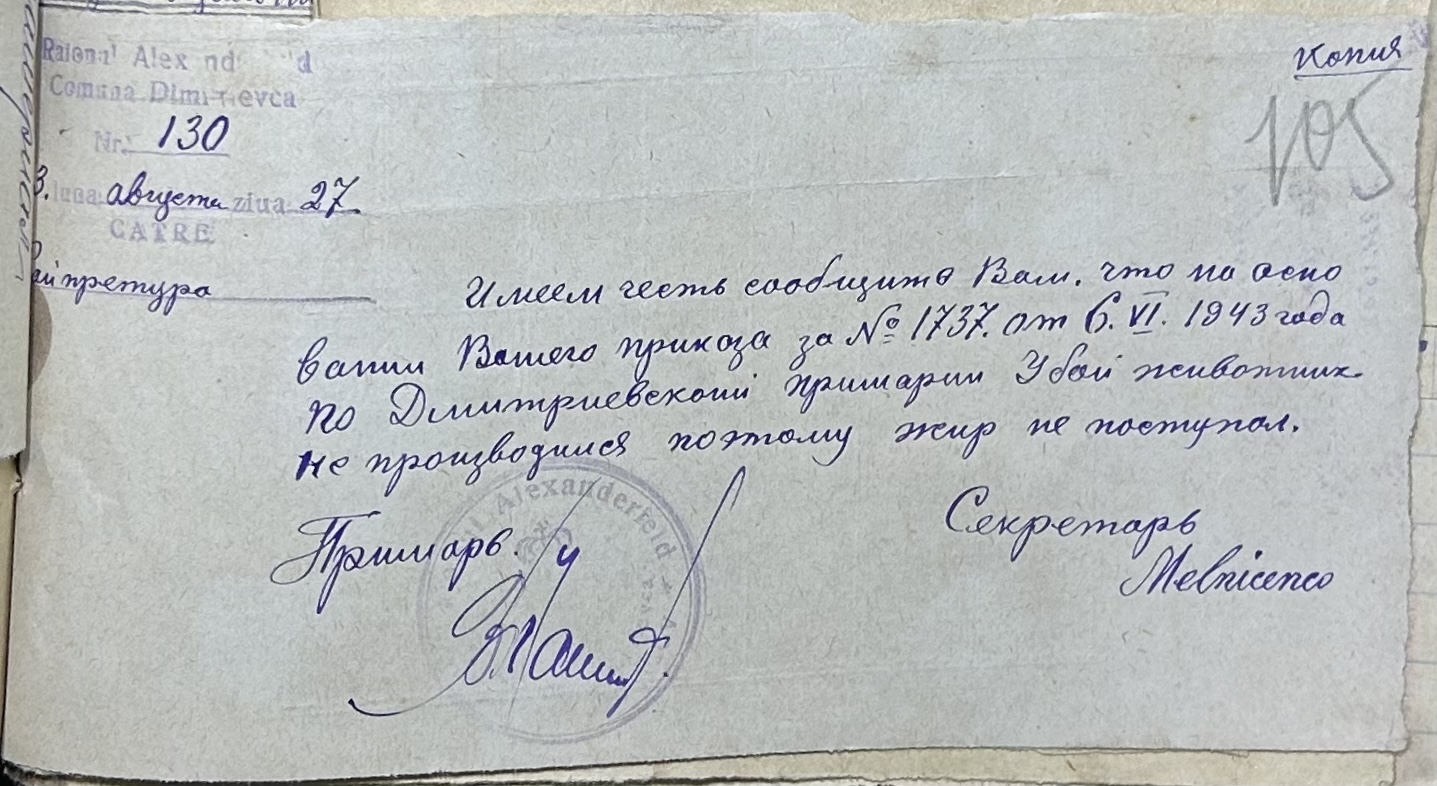 Копия
105
Raional Alex nd d
Comuna Dimitrievca
Nr. 130
3. luna августа ziua 27
CATRE
претура
Имеем честь сообщить Вам, что на осно
вании Вашего приказа за № 1737. от 6. VI. 1943 года
по Дмитриевской примарии Убой животних
не производился поэтому жир не поступал.
Примарь.
Секретарь
Melnicenco
Alexanderfeld